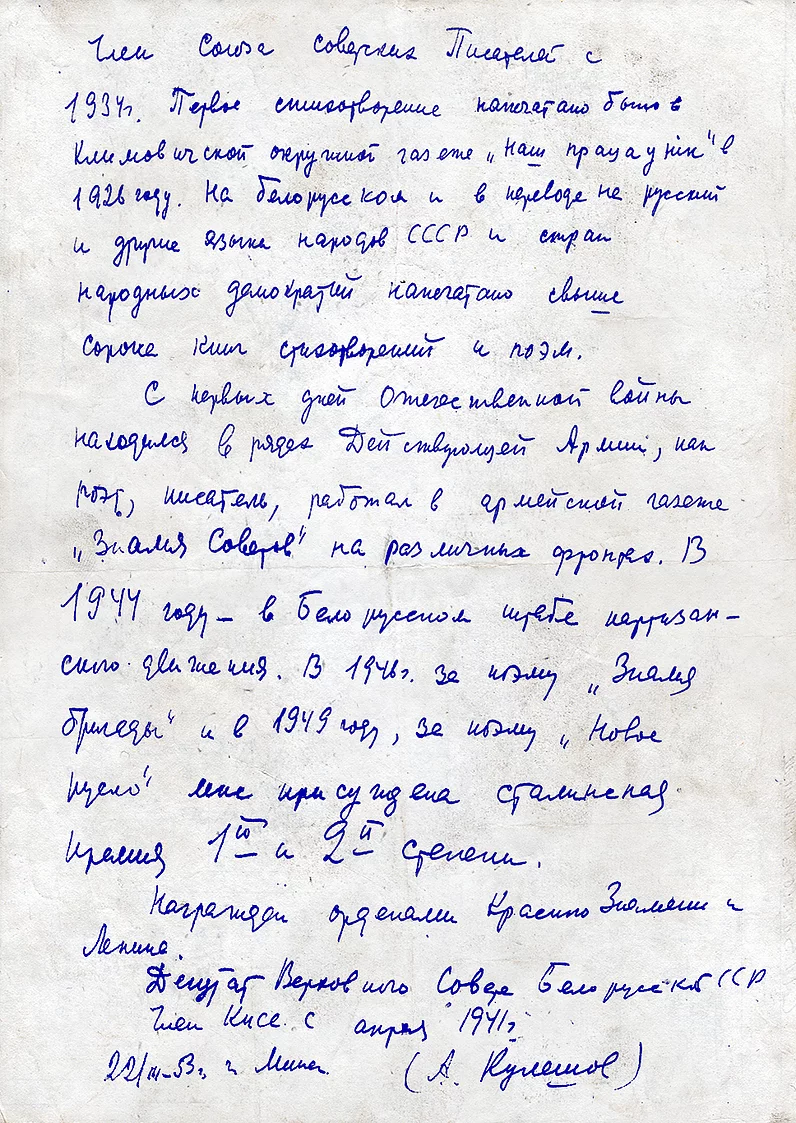 Член Союза Советских Писателей с
1934г. Первое стихотворение напечатано было в
Климовичской окружной газете „Наш працаунiк" в
1926 году. На белорусском и в переводе на русский
и другие языки народов СССР и стран
народных демократий напечатано свыше
сорока книг стихотворений и поэм.
С первых дней Отечественной войны
находился в рядах Действующей Армии, как
поэт, писатель, работал в армейской газете
„Знамя Советов" на различных фронтах. В
1944 году – в Белорусском штабе партизан–
ского движения. В 1946г. за поэму „Знамя
бригады" и в 1949 году, за поэму „Новое
русло" мне присуждена сталинская
премия 1ой и 2й степени.
Награжден орденами Красного Знамени и
Ленина.
Депутат Верховного Совета Белорусской ССР
Член КПСС с апреля 1941г.
22/III–53г. г. Минск. (А. Кулешов)